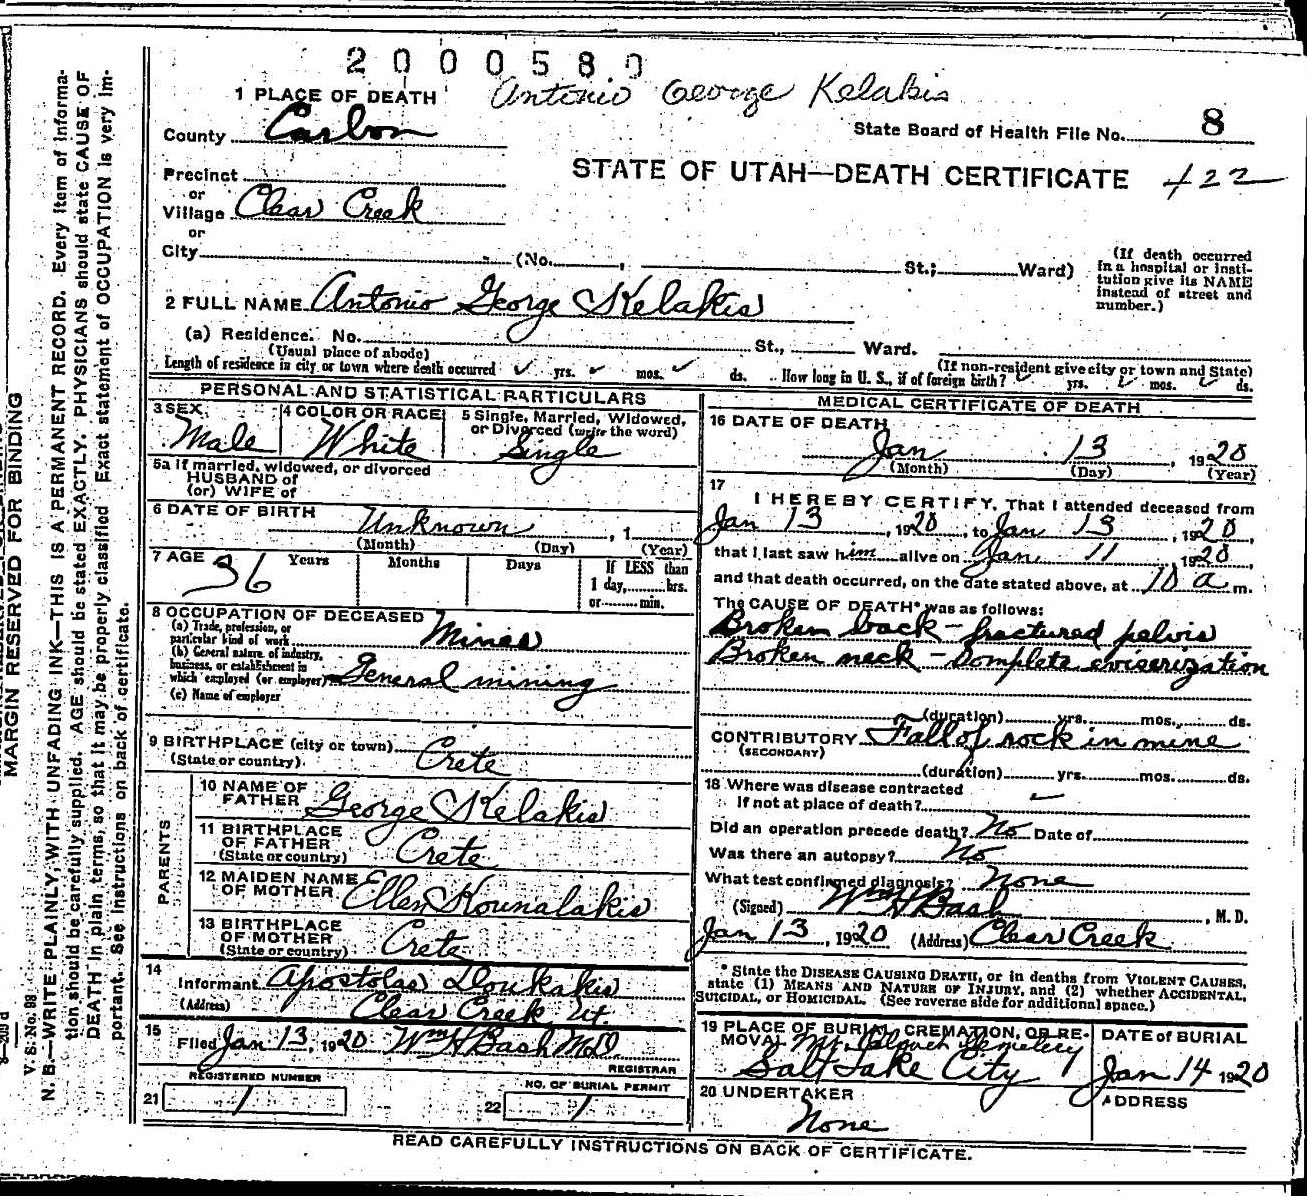 2000580
Antonio George Kelakis
1 PLACE OF DEATH
County Carbon
State Board of Health File No. 8
Precinct
STATE OF UTAH—DEATH CERTIFICATE 422
or
Village Clear Creek
or
City (No. , St.; Ward)
(If death occurred in a hospital or insti-
tution give its NAME
instead of street and
number.)
2 FULL NAME Antonio George Kelakis
(a) Residence. No. St., Ward.
(Usual place of abode)
(If non-resident give city or town and State)
Length of residence in city or town where death occurred ✓ yrs. ✓ mos. ✓ ds. How long in U. S., if of foreign birth? ✓ yrs. ✓ mos. ✓ ds.
PERSONAL AND STATISTICAL PARTICULARS
3 SEX Male
4 COLOR OR RACE White
5 Single, Married, Widowed,
or Divorced (write the word)
Single
5a If married, widowed, or divorced
HUSBAND of
(or) WIFE of
6 DATE OF BIRTH Unknown , 1
(Month) (Day) (Year)
7 AGE 36 Years Months Days
If LESS than
1 day, hrs.
or min.
8 OCCUPATION OF DECEASED
(a) Trade, profession, or
particular kind of work Miner
(b) General nature of industry,
business, or establishment in
which employed (or employer) General mining
(c) Name of employer
9 BIRTHPLACE (city or town)
(State or country) Crete
PARENTS
10 NAME OF
FATHER George Kelakis
11 BIRTHPLACE
OF FATHER
(State or country) Crete
12 MAIDEN NAME
OF MOTHER Ellen Kounalakis
13 BIRTHPLACE
OF MOTHER
(State or country) Crete
14
Informant Apostolas Doukakis
(Address) Clear Creek Ut.
15
Filed Jan 13, 1920 Wm H Bash M.D.
REGISTRAR
REGISTERED NUMBER
21 1
NO. OF BURIAL PERMIT
22 1
MEDICAL CERTIFICATE OF DEATH
16 DATE OF DEATH
Jan 13, 1920
(Month) (Day) (Year)
17
I HEREBY CERTIFY, That I attended deceased from
Jan 13, 1920, to Jan 13, 1920,
that I last saw him alive on Jan 11 1920,
and that death occurred, on the date stated above, at 10 a m.
The CAUSE OF DEATH* was as follows:
Broken back - fractured pelvis
Broken neck - Complete eviserization
(duration) yrs. mos. ds.
CONTRIBUTORY Fall of rock in mine
(SECONDARY)
(duration) yrs. mos. ds.
18 Where was disease contracted
If not at place of death? ✓
Did an operation precede death? No Date of
Was there an autopsy? No
What test confirmed diagnosis? None
(Signed) Wm H Bash , M. D.
Jan 13, 1920 (Address) Clear Creek
* State the DISEASE CAUSING DEATH, or in deaths from VIOLENT CAUSES,
state (1) MEANS AND NATURE OF INJURY, and (2) whether ACCIDENTAL,
SUICIDAL, or HOMICIDAL. (See reverse side for additional space.)
19 PLACE OF BURIAL, CREMATION, OR RE-
MOVAL Mt. Cemetery
Salt Lake City
DATE of BURIAL
Jan 14 1920
20 UNDERTAKER
None
ADDRESS
READ CAREFULLY INSTRUCTIONS ON BACK OF CERTIFICATE.
MARGIN RESERVED FOR BINDING
V. S. No. 88
N. B.—WRITE PLAINLY, WITH UNFADING INK—THIS IS A PERMANENT RECORD. Every item of informa-
tion should be carefully supplied. AGE should be stated EXACTLY. PHYSICIANS should state CAUSE OF
DEATH in plain terms, so that it may be properly classified. Exact statement of OCCUPATION is very im-
portant. See instructions on back of certificate.